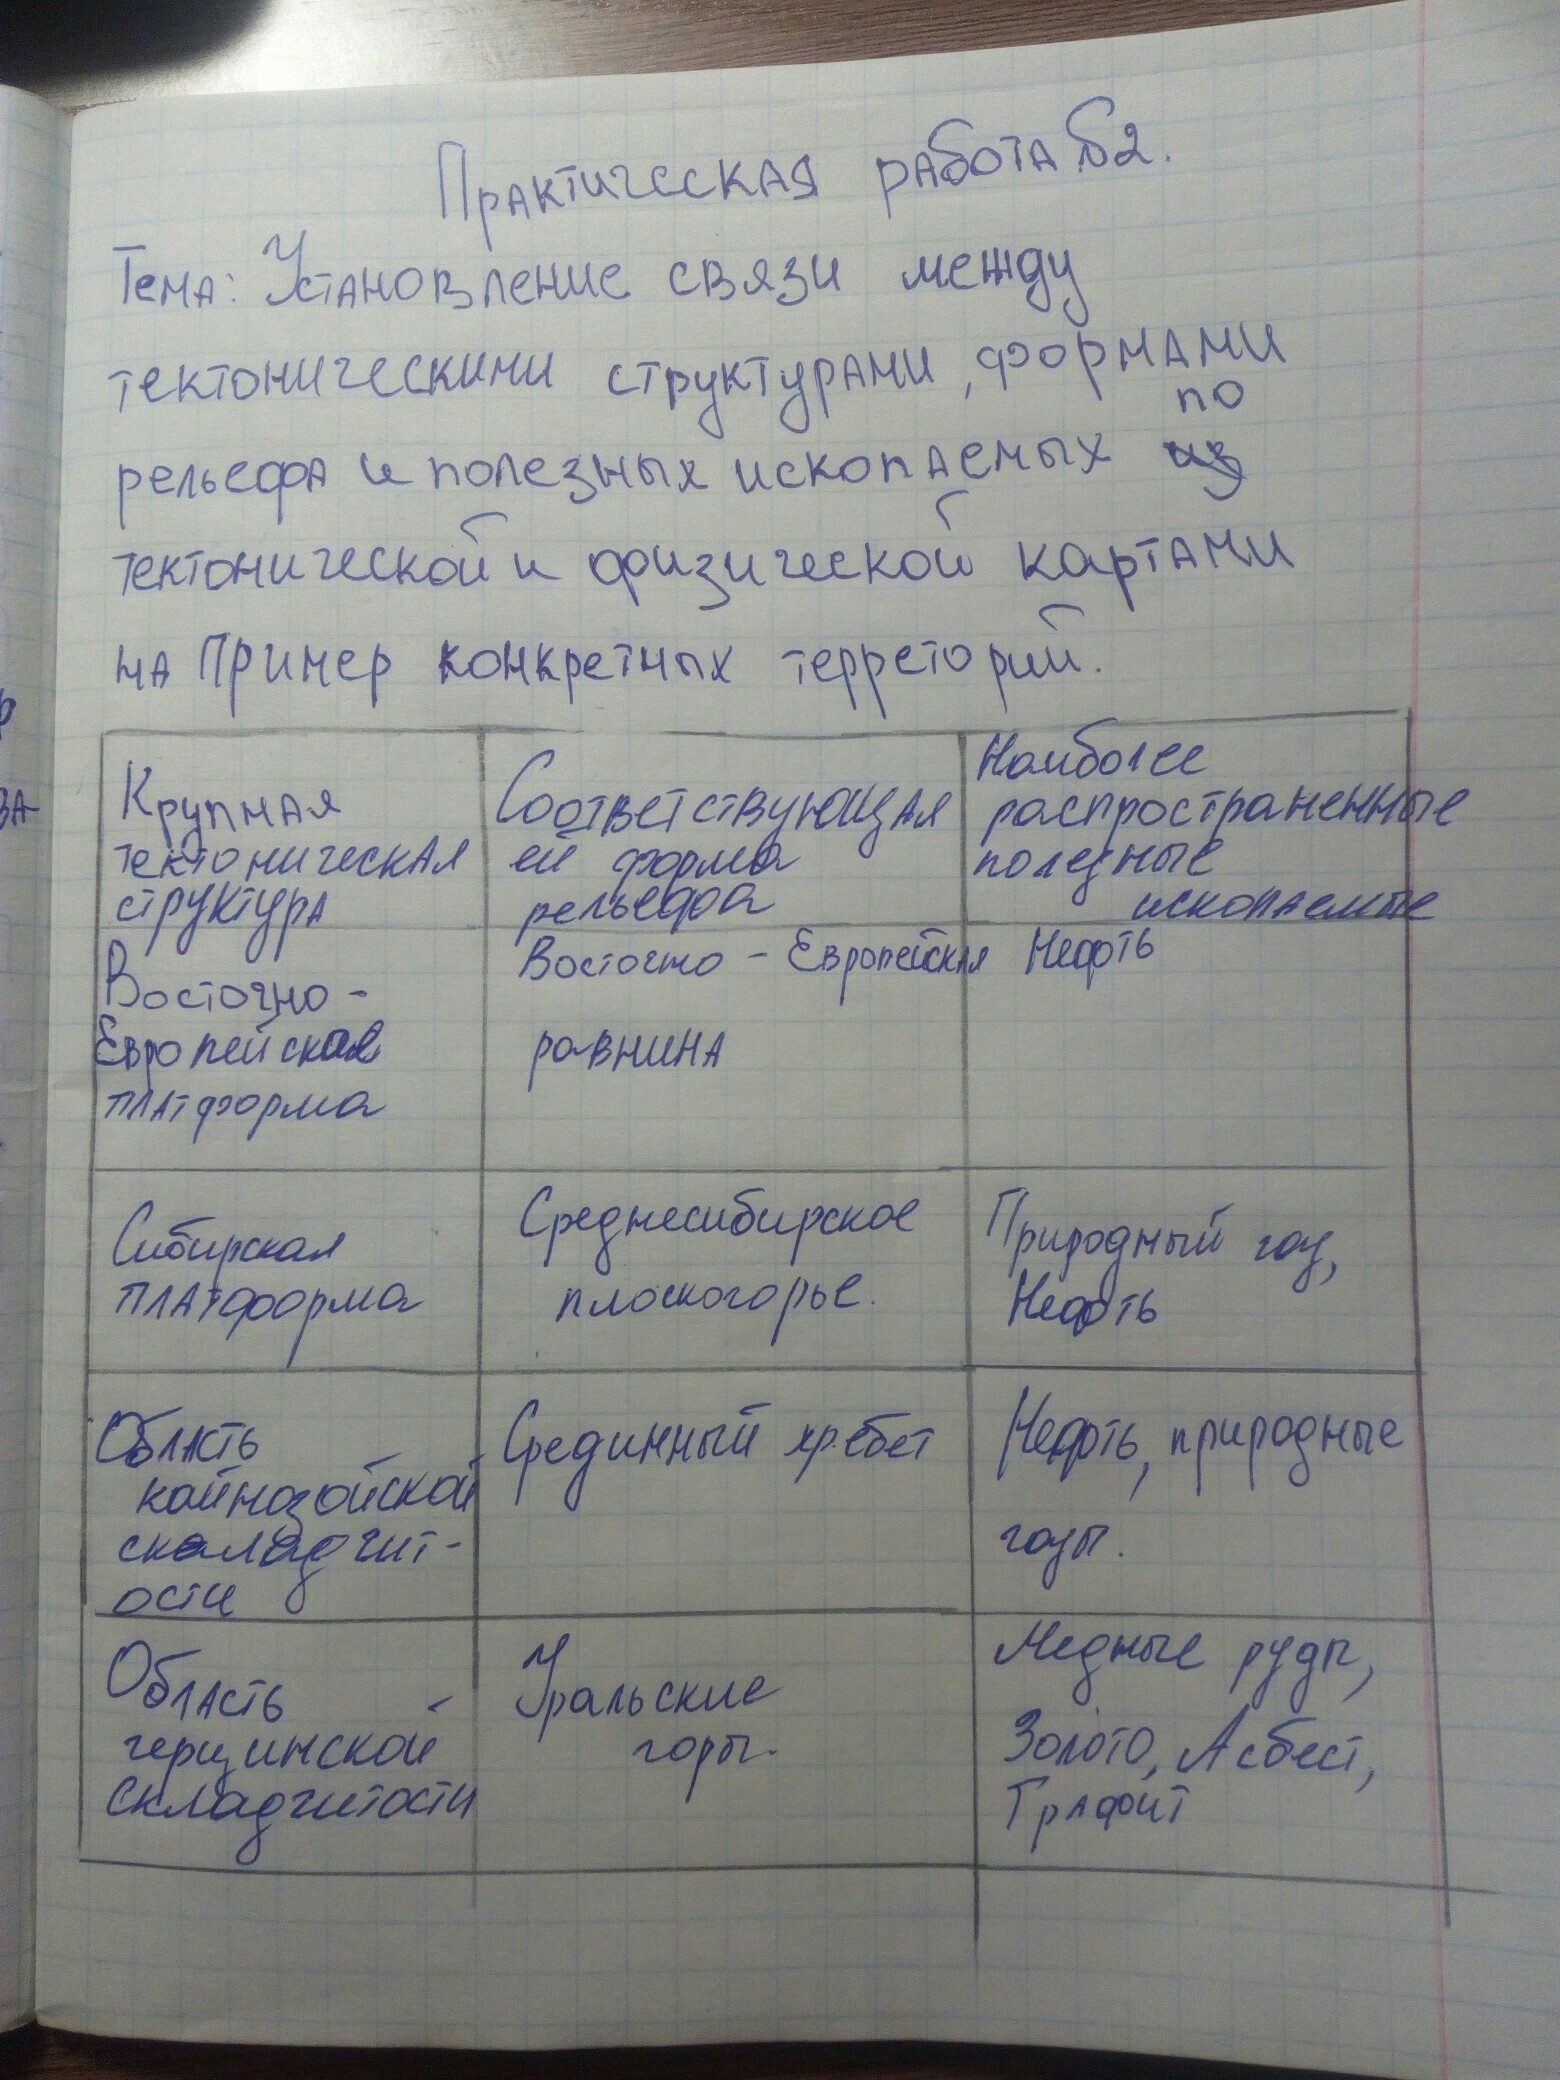 Практическая работа №2.
Тема: Установление связи между
тектоническими структурами, формами
по
рельефа и полезных ископаемых из
тектонической и физической картами
на Пример конкретных терреторий.
Крупная
тектоническая
структура
Соответствующая
ей форма
рельефа
Наиболее
распространенные
полезные
ископаемые
Восточно-
Европейская
платформа
Восточно - Европейская
равнина
Нефть
Сибирская
платформа
Среднесибирское
плоскогорье.
Природный газ,
Нефть
Область
кайнозойской
складчит-
ости
Срединный хребет
Нефть, природные
газы.
Область
герцинской
складчитости
Уральские
горы.
Медные руды,
Золото, Асбест,
Графит